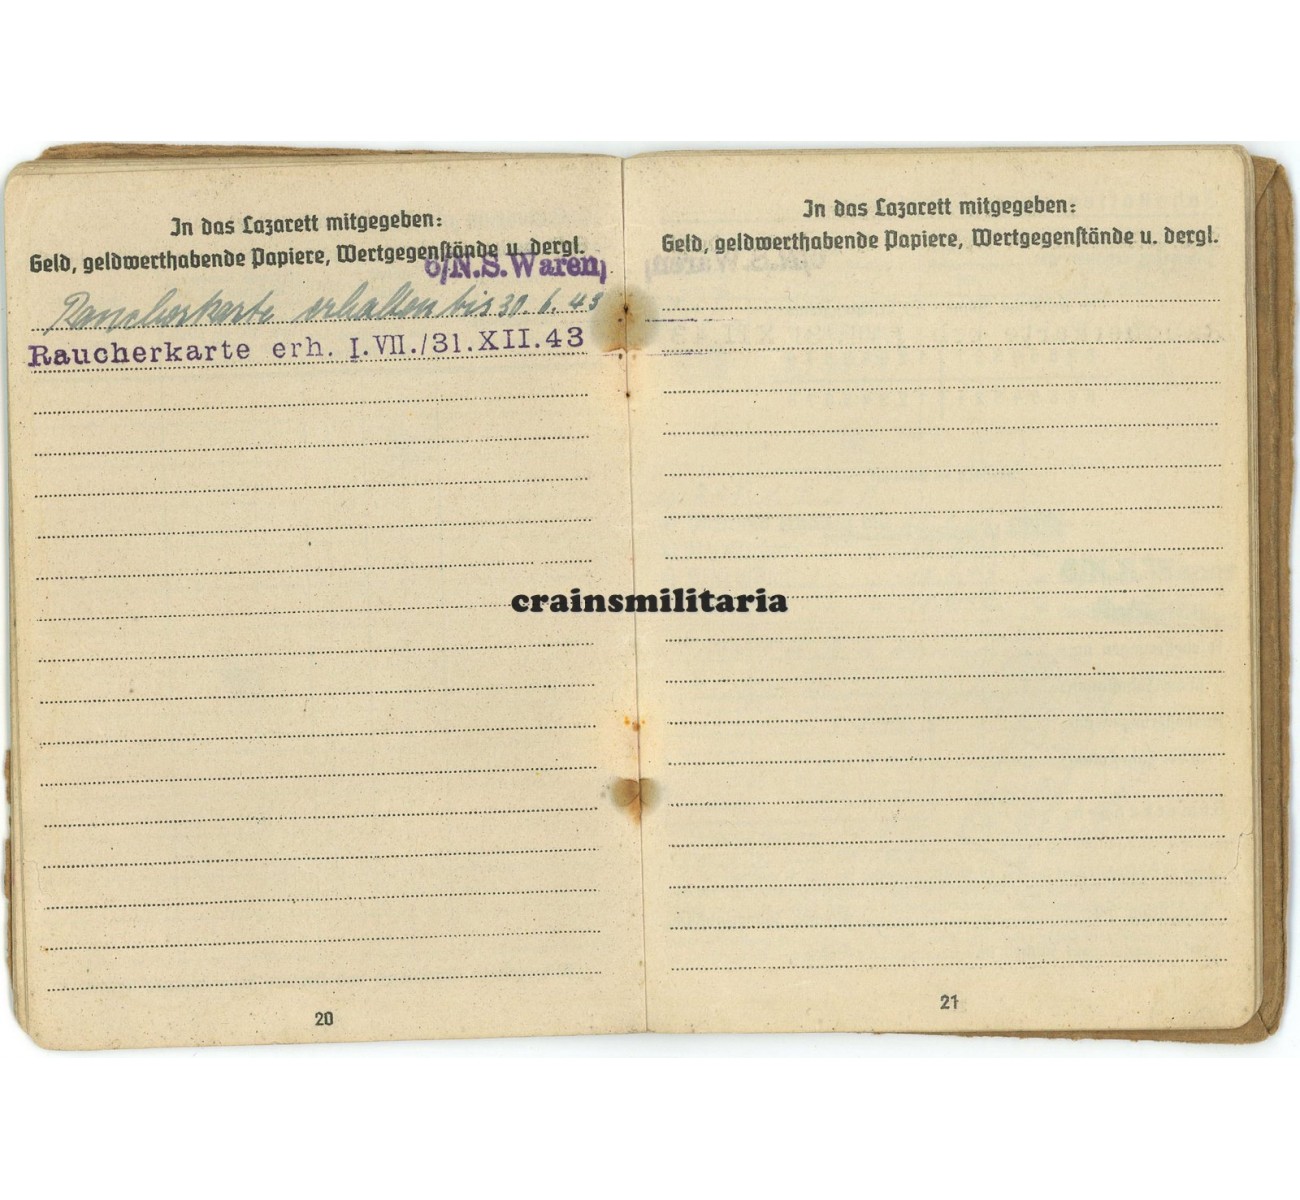 In das Lazarett mitgegeben:
Geld, geldwerthabende Papiere, Wertgegenstände u. dergl.
o/N.S.Waren,
Raucherkarte erhalten bis 30. 6. 43
Raucherkarte erh. I.VII./31.XII.43
20
In das Lazarett mitgegeben:
Geld, geldwerthabende Papiere, Wertgegenstände u. dergl.
21
crainsmilitaria